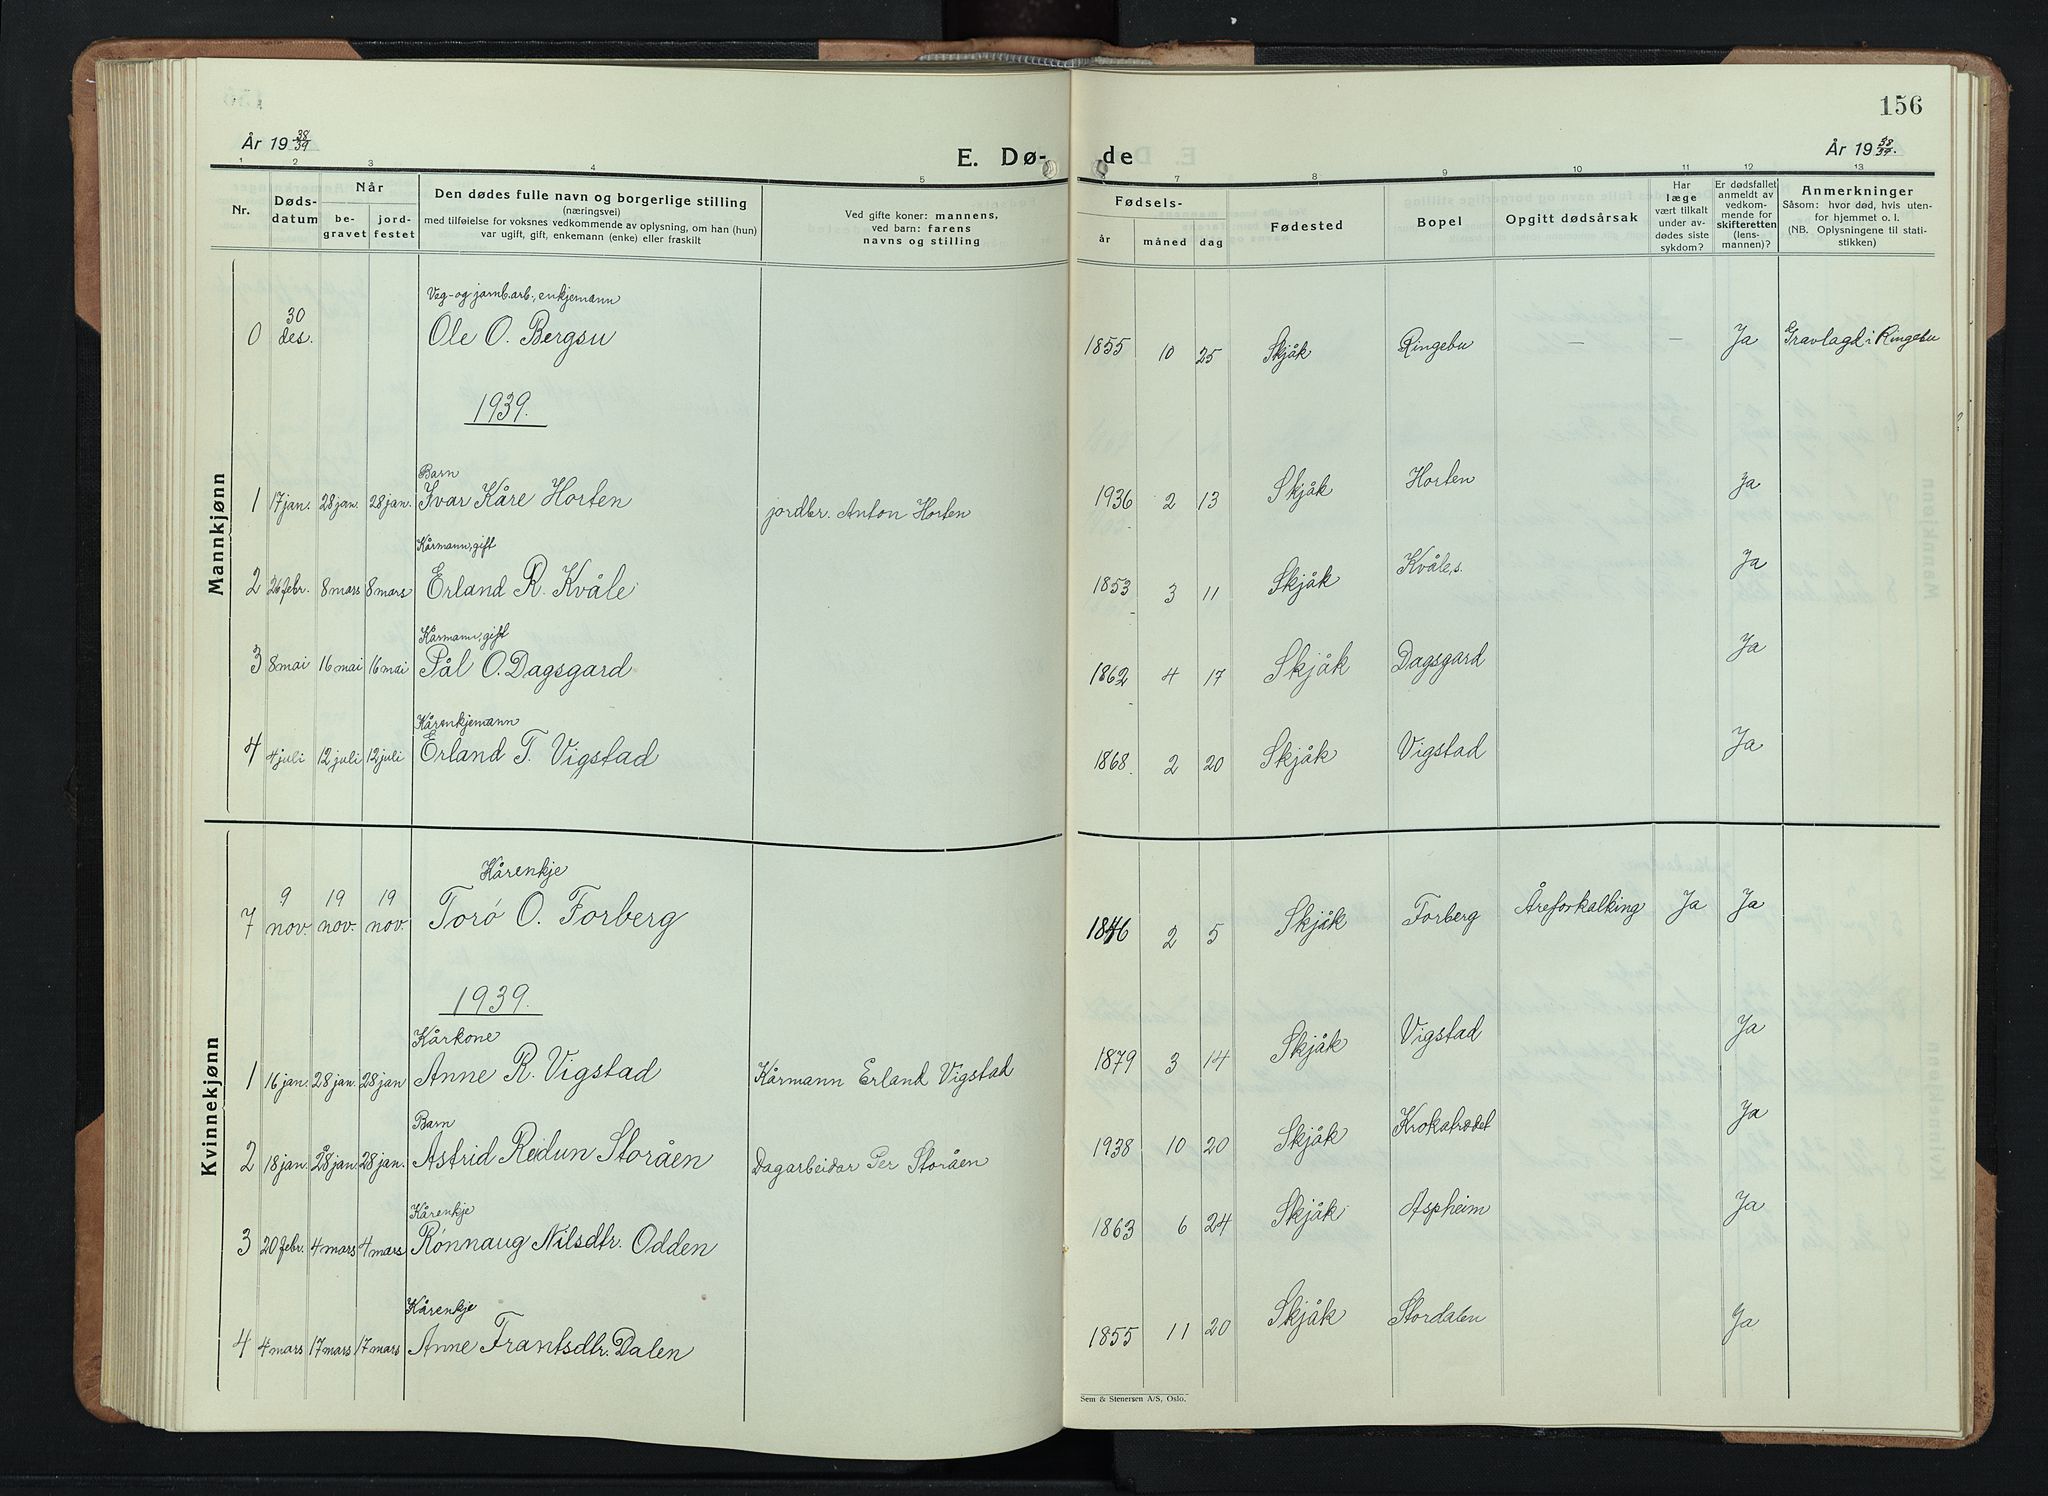 156
År 19 38/39
E. Dø-
de
År 19 38/39.
1 2 3 4 5 7 8 9 10 11 12 13
Nr.
Døds-
datum
Når
be-
gravet
jord-
festet
Den dødes fulle navn og borgerlige stilling
(næringsvei)
med tilføielse for voksnes vedkommende av oplysning, om han (hun)
var ugift, gift, enkemann (enke) eller fraskilt
Ved gifte koner: mannens,
ved barn: farens
navns og stilling
Fødsels-
år måned dag
Fødested
Bopel
Opgitt dødsårsak
Har
læge
vært tilkalt
under av-
dødes siste
sykdom?
Er dødsfallet
anmeldt av
vedkom-
mende for
skifteretten
(lens-
mannen)?
Anmerkninger
Såsom: hvor død, hvis uten-
for hjemmet o. l.
(NB. Oplysningene til stati-
stikken)
Mannkjønn
Veg- og jarnb.arb., enkjemann
0 30 des. Ole O. Bergsu 1855 10 25 Skjåk Ringebu — — Ja Gravlagd i Ringebu
1939.
Barn
1 17 jan. 28 jan. 28 jan. Ivar Kåre Horten jordbr. Anton Horten 1936 2 13 Skjåk Horten Ja
Kårmann, gift
2 26 febr. 8 mars 8 mars Erland R. Kvåle 1853 3 11 Skjåk Kvåle, s. Ja
Kårmann, gift
3 8 mai 16 mai 16 mai Pål O. Dagsgard 1862 4 17 Skjåk Dagsgard Ja
Kårenkjemann
4 4 juli 12 juli 12 juli Erland T. Vigstad 1868. 2 20 Skjåk Vigstad Ja
Kvinnekjønn
Kårenkje
7 9 nov. 19 nov. 19 nov. Torø O. Forberg 1846 2 5 Skjåk Forberg Åreforkalking Ja Ja
1939.
Kårkone
1 16 jan. 28 jan. 28 jan Anne R. Vigstad Kårmann Erland Vigstad 1879 3 14 Skjåk Vigstad Ja
Barn
2 18 jan. 28 jan. 28 jan. Astrid Reidun Storåen Dagarbeidar Per Storåen 1938 10 20 Skjåk Ja
Kårenkje
3 20 febr. 4 mars 4 mars Rønnaug Nilsdtr. Odden 1863 6 24 Skjåk Aspheim Ja
Kårenkje
4 4 mars 17 mars 17 mars Anne Frantsdtr. Dalen 1855 11 20 Skjåk Stordalen Ja
Sem & Stenersen A/S, Oslo.